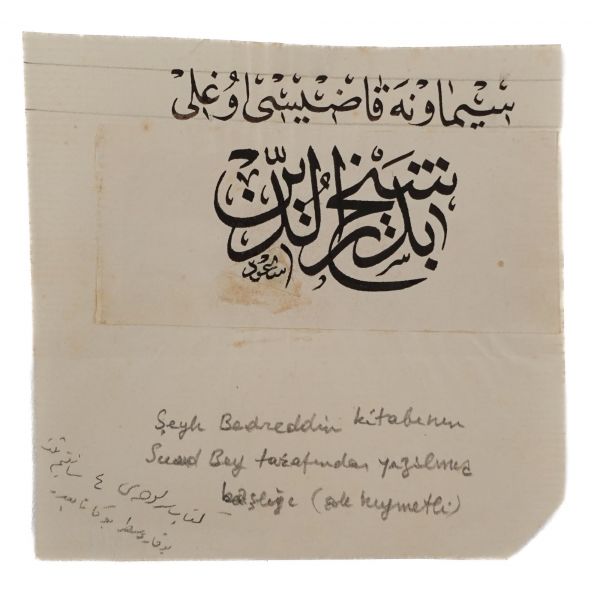 سيماونه قاضيسى اوغلى
شيخ بدر الدين
Şeyh Bedreddin kitabının
Suad Bey tarafından yazılmış
başlığı (çok kıymetli)
كتاب ٤